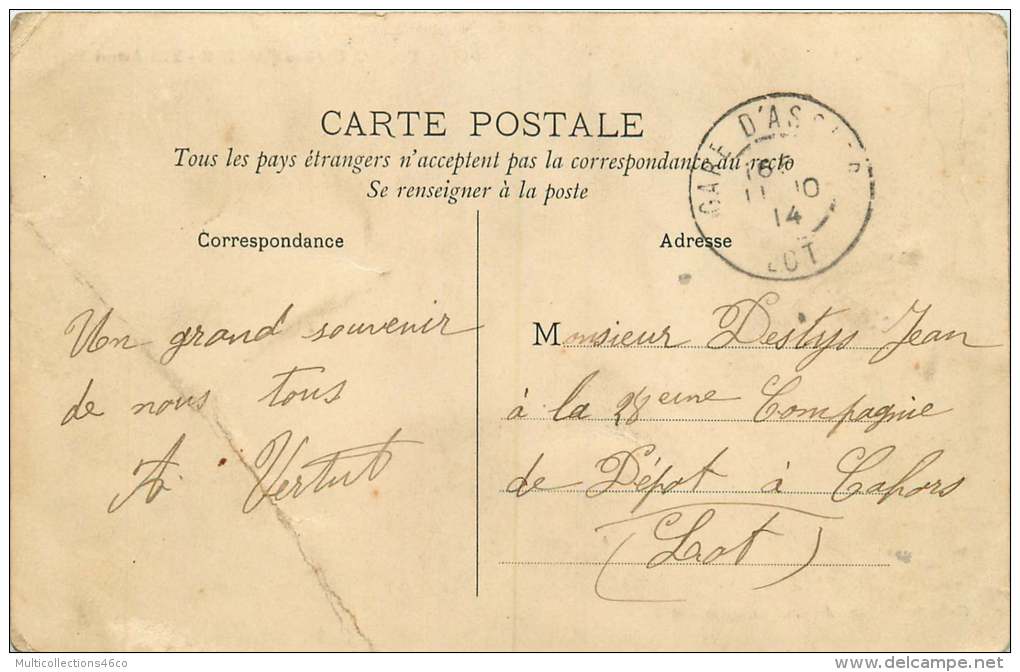 CARTE POSTALE
Tous les pays étrangers n'acceptent pas la correspondance au recto
Se renseigner à la poste
GARE D'ASSIER
11 10
14
LOT
Correspondance
Un grand souvenir
de nous tous
A. Vertut
Adresse
Monsieur Destys Jean
à la 28 eme Compagnie
de Dépot à Cahors
(Lot)
Multicollections46co
delcampe.net